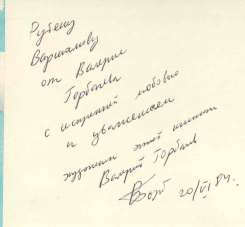 Рубену
Варшамову
от Валерия
Горбачева
с искренней любовью
и уважением
художник этой книги
Валерий Горбачев
20/VI 84.